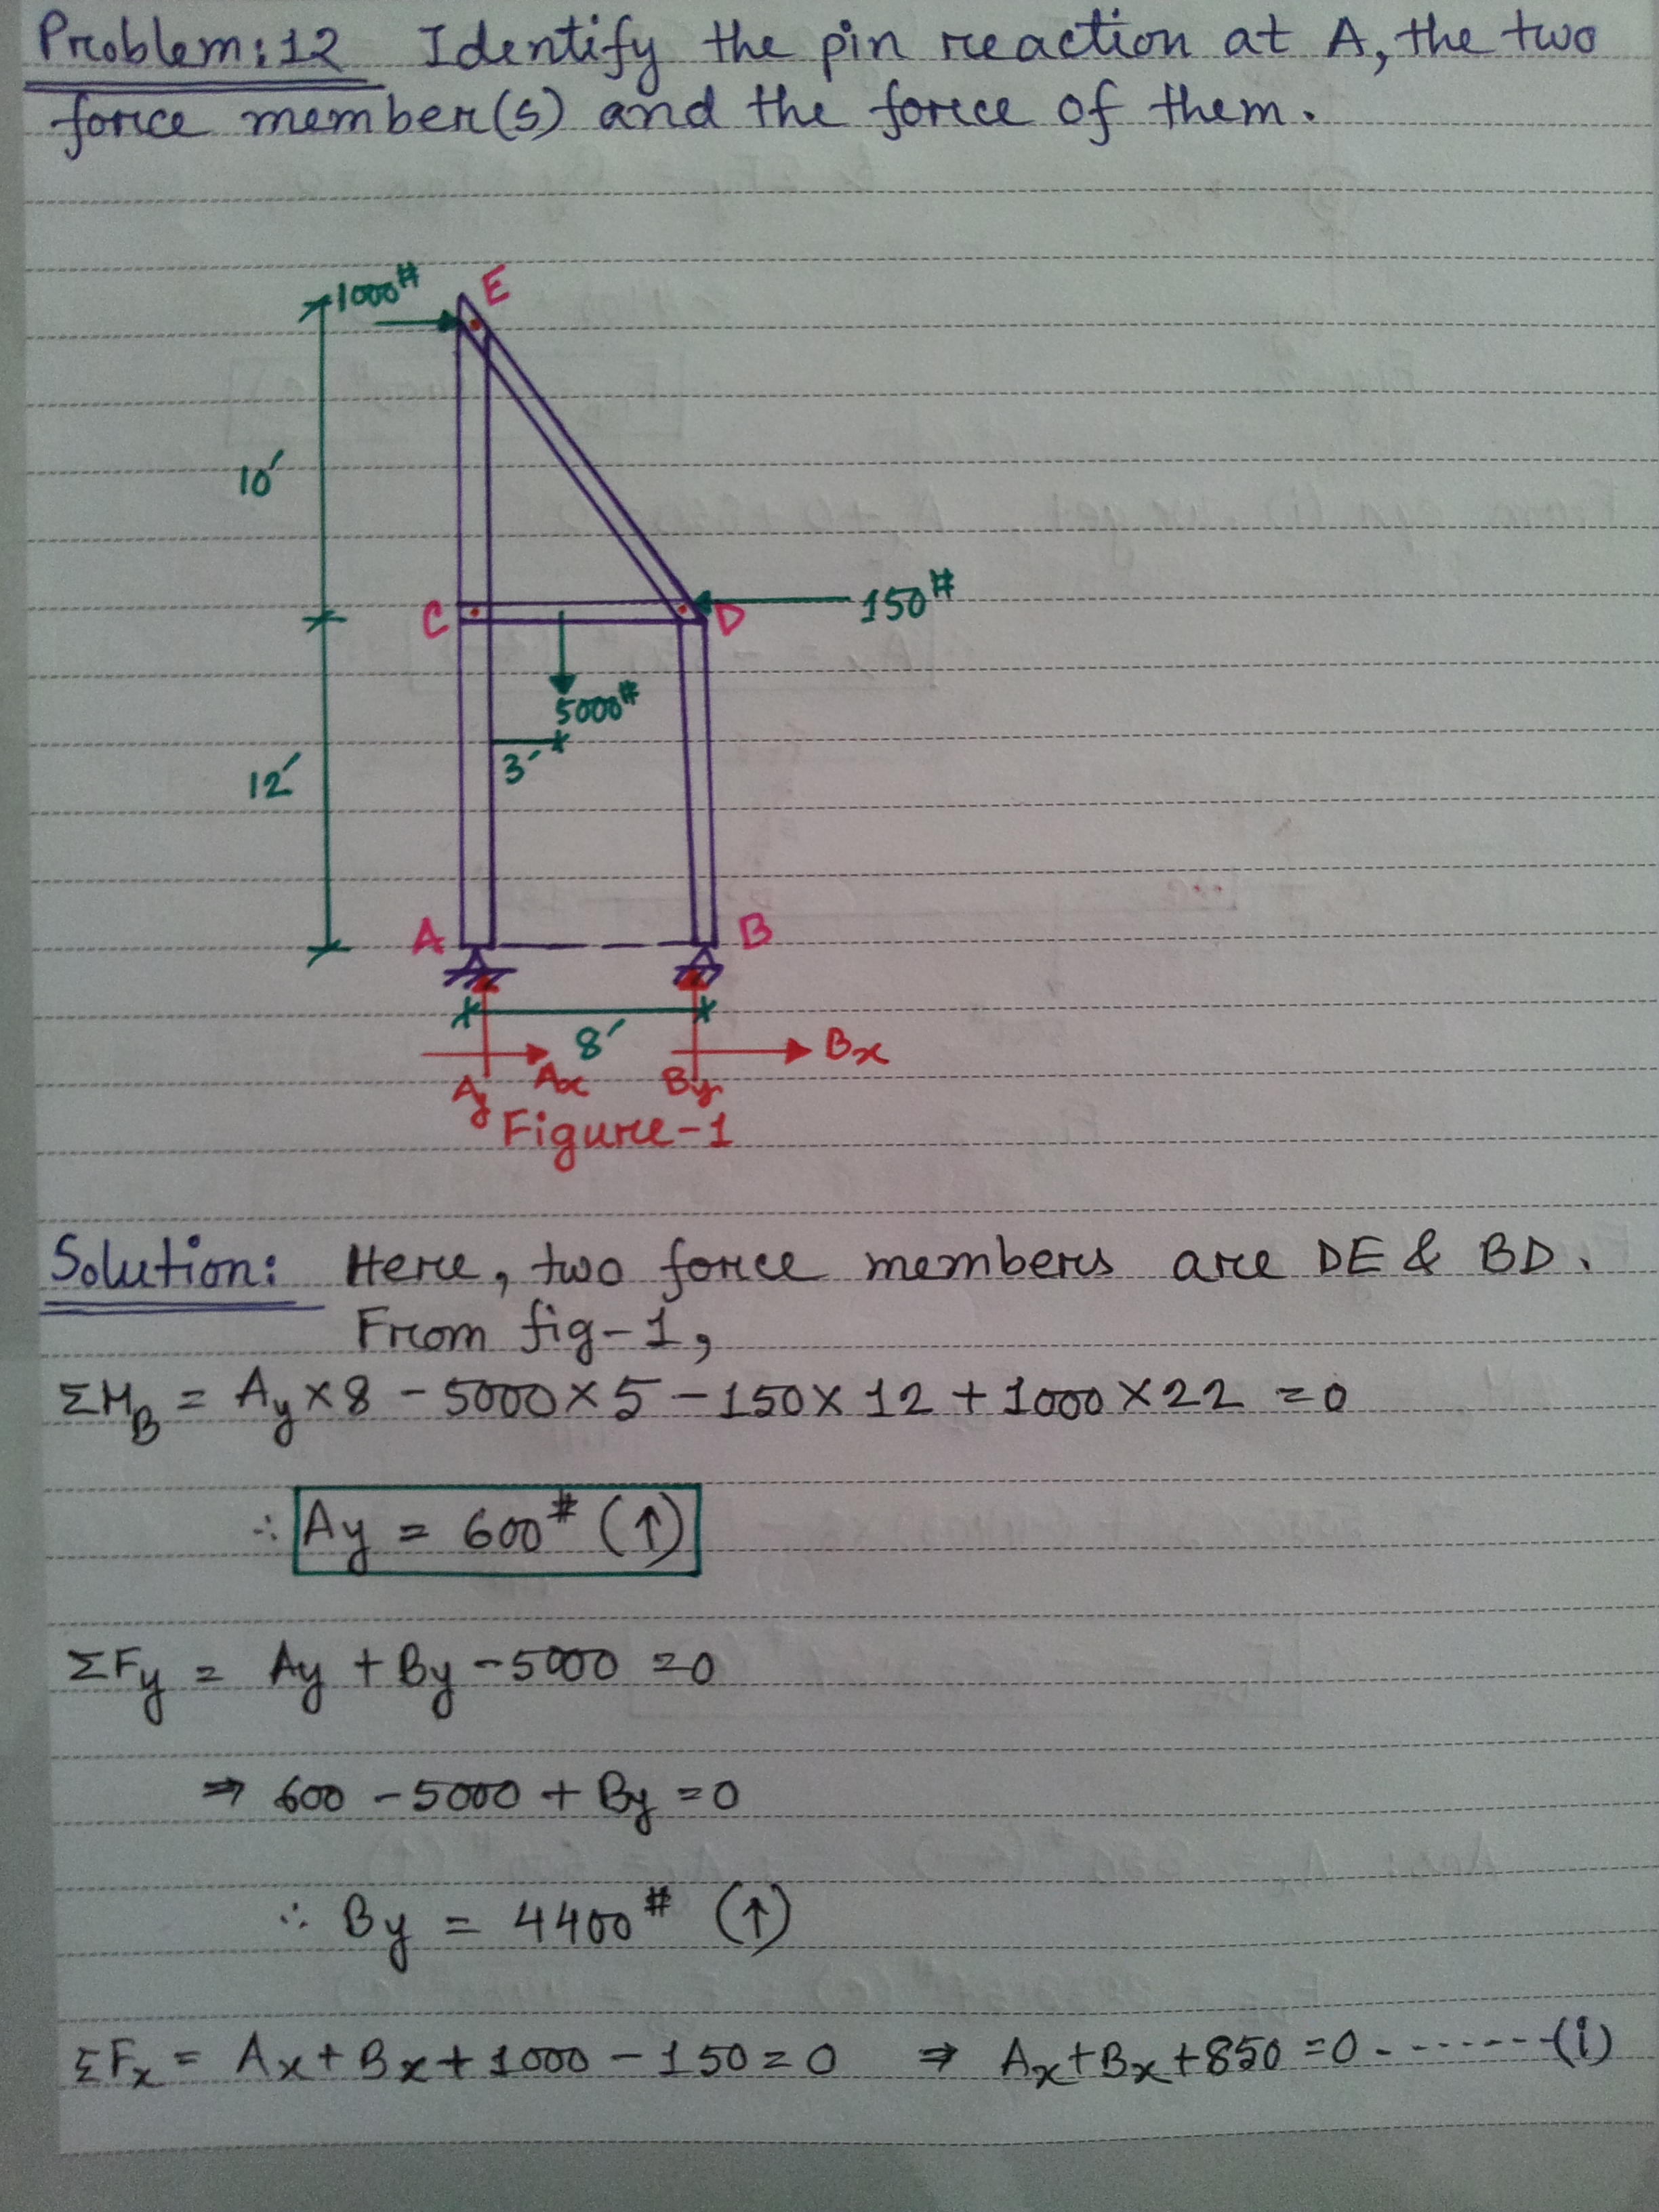 Problem:12 Identify the pin reaction at A, the two
force member(s) and the force of them.
1000#
E
10′
C
D
150#
5000#
3′
12′
A
B
8′
Bx
Ay
Ax
By
Figure-1
Solution: Here, two force members are DE & BD.
From fig-1,
ΣMB = Ay×8 - 5000×5 - 150×12 + 1000×22 = 0
∴ Ay = 600# (↑)
ΣFy = Ay + By - 5000 = 0
⇒ 600 - 5000 + By = 0
∴ By = 4400# (↑)
ΣFx = Ax + Bx + 1000 - 150 = 0 ⇒ Ax + Bx + 850 = 0 - - - - - - - (i)